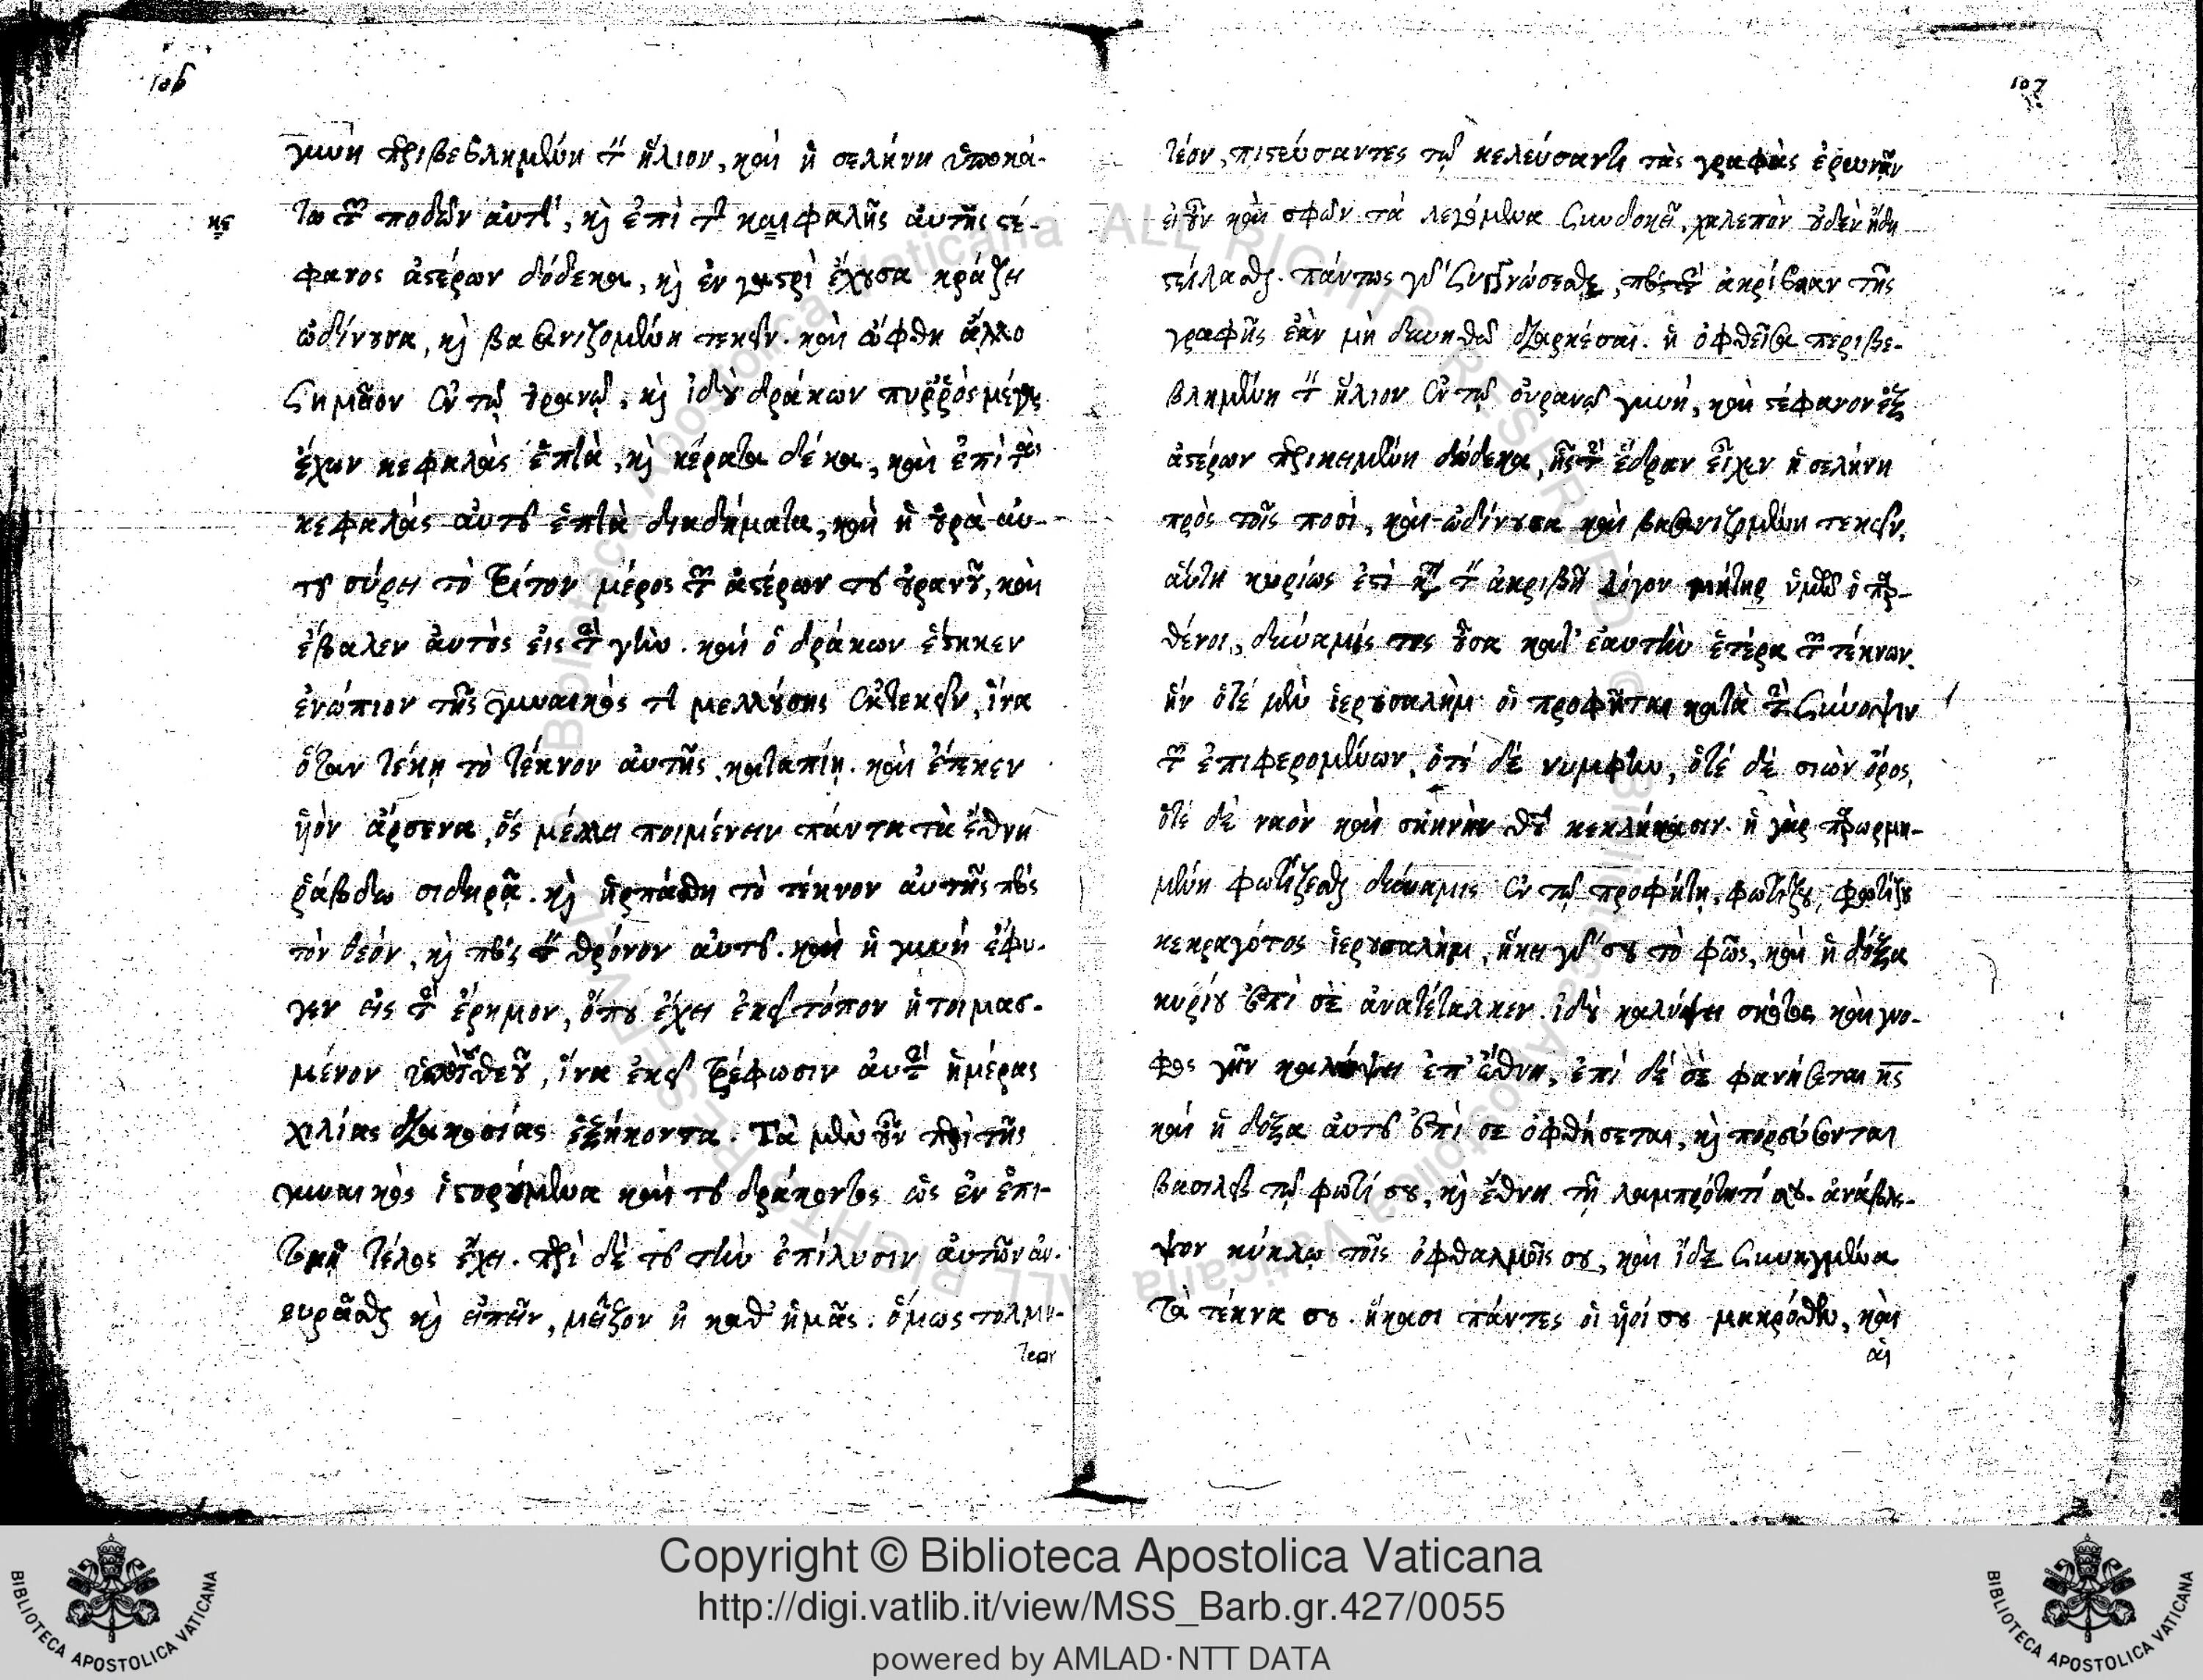 106
γυνὴ περιβεβλημένη τὸν ἥλιον, καὶ ἡ σελήνη ὑποκά-
τω τῶν ποδῶν αὐτῆς, κὶ ἐπὶ τῆς καιφαλῆς αὐτῆς στέ-
κε
φανος ἀστέρων δόδεκα, κὶ ἐν γαστρὶ ἔχουσα κράζει
ὠδίνουσα, κὶ βασανιζομένη τεκεῖν. καὶ ὤφθη ἄλλο
σημεῖον ἐν τῷ οὐρανῷ, κὶ ἰδοὺ δράκων πυῤῥὸς μέγας
ἔχων κεφαλὰς ἑπτὰ, κὶ κέρατα δέκα, καὶ ἐπὶ τὰς
κεφαλὰς αὐτοῦ ἑπτὰ διαδήματα, καὶ ἡ οὐρὰ αὐ-
τοῦ σύρει τὸ τρίτον μέρος τῶν ἀστέρων τοῦ οὐρανοῦ, καὶ
ἔβαλεν αὐτοὺς εἰς τὴν γῆν. καὶ ὁ δράκων ἕστηκεν
ἐνώπιον τῆς γυναικὸς τῆς μελλούσης ἐκτεκεῖν, ἵνα
ὅταν τέκῃ τὸ τέκνον αὐτῆς, καταπίῃ. καὶ ἔτεκεν
ὑὸν ἄρσενα, ὃς μέλλει ποιμένειν πάντα τὰ ἔθνη
ῥάβδῳ σιδηρᾷ. κὶ ἡρπάσθη τὸ τέκνον αὐτῆς πρὸς
τὸν θεόν, κὶ πρὸς τὸν θρόνον αὐτοῦ. καὶ ἡ γυνὴ ἔφυ-
γεν εἰς τὴν ἔρημον, ὅπου ἔχει ἐκεῖ τόπον ἡτοιμασ-
μένον ἀπὸ τοῦ θεοῦ, ἵνα ἐκεῖ τρέφωσιν αὐτὴν ἡμέρας
χιλίας διακοσίας ἑξήκοντα. Τὰ μὲν οὖν περὶ τῆς
γυναικὸς ἱστορούμενα καὶ τοῦ δράκοντος ὡς ἐν ἐπι-
τομῇ τέλος ἔχει. περὶ δὲ τοῦ τὴν ἐπίλυσιν αὐτῶν ἀν-
ευρᾶσθαι κὶ εἰπεῖν, μεῖζον ἢ καθ' ἡμᾶς. ὅμως τολμη-
τέον
107
τέον, πιστεύσαντες τῷ κελεύσαντι τὰς γραφὰς ἐρευνᾷν
εἰ οὖν καὶ σφῶν τὰ λεγόμενα συνδοκεῖ, χαλεπὸν οὐδὲν ἤδη
στείλασθαι. πάντως γὰρ συγγνώσεσθε, πρὸς τὴν ἀκρίβειαν τῆς
γραφῆς ἐὰν μὴ δυνηθῶ διαρκέσαι. ἡ ὀφθεῖσα περιβε-
βλημένη τὸν ἥλιον ἐν τῷ οὐρανῷ γυνὴ, καὶ στέφανον ἐξ
ἀστέρων περικειμένη δώδεκα, ἧς τὴν ἕδραν εἶχεν ἡ σελήνη
πρὸς τοῖς ποσὶ, καὶ ὠδίνουσα καὶ βασανιζομένη τεκεῖν,
αὕτη κυρίως ἐστὶ κατὰ τὸν ἀκριβῆ λόγον μήτηρ ὑμῶν ὁ παρ-
θένοι, δύναμίς τις οὖσα καθ' ἑαυτὴν ἑτέρα τῶν τέκνων.
ἣν ὁτὲ μὲν ἱερουσαλὴμ οἱ προφῆται κατὰ τὴν σύνοψιν
τῶν ἐπιφερομένων, ὁτὲ δὲ νύμφην, ὁτὲ δὲ σιὼν ὄρος,
ὁτὲ δὲ ναὸν καὶ σκηνὴν θεοῦ κεκλήκασιν. ἡ γὰρ παρωρμη-
μένη φωτίζεσθαι δύναμις ἐν τῷ προφήτῃ, φωτίζου, φωτίζου
κεκραγότος ἱερουσαλὴμ, ἥκει γάρ σου τὸ φῶς, καὶ ἡ δόξα
κυρίου ἐπὶ σὲ ἀνατέταλκεν. ἰδοὺ καλύψει σκότος καὶ γνο-
φος γῆν καλύψει ἐπ' ἔθνη, ἐπὶ δὲ σὲ φανήσεται κς
καὶ ἡ δόξα αὐτοῦ ἐπὶ σε ὀφθήσεται, κὶ πορεύσονται
βασιλεῖς τῷ φωτί σου, κὶ ἔθνη τῇ λαμπρότητί σου. ἀνάβλε-
ψον κύκλῳ τοῖς ὀφθαλμοῖς σου, καὶ ἴδε συνηγμένα
τὰ τέκνα σου. ἥκασι πάντες οἱ ὑοί σου μακρόθεν, καὶ
αἱ
Copyright © Biblioteca Apostolica Vaticana
http://digi.vatlib.it/view/MSS_Barb.gr.427/0055
powered by AMLAD·NTT DATA
BIBLIOTECA APOSTOLICA VATICANA
BIBLIOTECA APOSTOLICA VATICANA